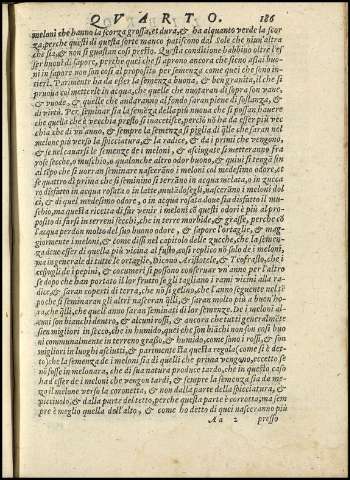 QVARTO. 186
meloni che hanno la scorza grossa, et dura, & ha alquanto verde la scor
za, perche questi di questa sorte manco patiscono dal Sole che niun' altra
che sia, & non si guastan così presto. Questa conditione habbino oltre l'es
ser buoni di sapore, perche quei che si aprono ancora che sieno assai buo-
ni in sapore non son così al proposito per semenza come quei che sono in-
tieri. Parimente ha da esser la semenza buona, & ben granita, il che si
pruova col metterle in acqua, & quelle che nuotaran di sopra son vane,
& vuode, & quelle che andaranno al fondo saran piene di sostanza, &
di virtù. Per seminar sia la semenza della più nuova che si possa havere
che quella che è vecchia presto si inacetisce, perciò nō ha da esser più vec
chia che di vn anno, & sempre la semenza si piglia di q̄lle che saran nel
melone più verso la spicciatura, & la radice, & dai primi che vengono,
& se nel cauarsi le semenze dei meloni, & asciugate si metteranno fra
rose secche, o muschio, o qualonche altro odor buono, & quiui si tengā sin
al tēpo che si vorran seminare nasceranno i meloni col medesimo odore, et
se quattro dì prima che si seminino si terrano in acqua melata, o in zucca
ro disfatto in acqua rosata o in latte, mutādoseglì, nasceranno i meloni dol
ci, & di quel medesimo odore, o in acqua rosata doue sia disfatto il mu-
schio, ma questa ricetta di far venir i meloni cō questi odori è più al pro-
posito di farsi in terreni secchi, che in terre morbide, & grasse, perche cō
l'acqua perdon molto del suo buono odore, & sapore l'ortaglie, & mag
giormente i meloni, & come dissi nel capitolo delle zucche, che la semen-
za deue esser di quella più vicina al fusto, così replico nō solo de i meloni,
ma in generale di tutte le ortaglie, Dicono Aristotele, & Teofrasto, che i
cespogli de i pepini, & cocumeri si possono conseruar vn anno per l'altro
se dopo che han portato il lor frutto se gli tagliano i rami vicini alla ra-
dice, & saran coperti di terra, che nō si gelino, che l'anno seguente nel tē
po che si seminaran gli altri nasceran q̄lli, & saran molto più a buon ho-
ra, che q̄lli, che quell'anno saran seminati di lor semenze. De i meloni al-
cuni son bianchi dentro, & alcuni rossi, & ancora che tutti generalmēte
sien migliori in secco, che in humido, quei che son biāchi non son così buo
ni communalmente in terreno grasso, & humido, come sono i rossi, & son
migliori in luoghi asciutti, & parmente Ha questa regola (come si è det-
to) che la semenza de i meloni sia di quelli che prima vengono, eccetto se
nō fosse in melonara, che di sua natura produce tardo, che in questo caso
ha d'esser de i meloni che vengon tardi, & sempre la semenza sia da me-
zo il melone verso la coronetta, & non dalla parte della spicciatura, &
picciuolo, & dalla parte del tetto, perche questa parte è corrotta; ma sem
pre è meglio quella dell'alto, & come ho detto di quei nasceranno più
Aa 2 presso